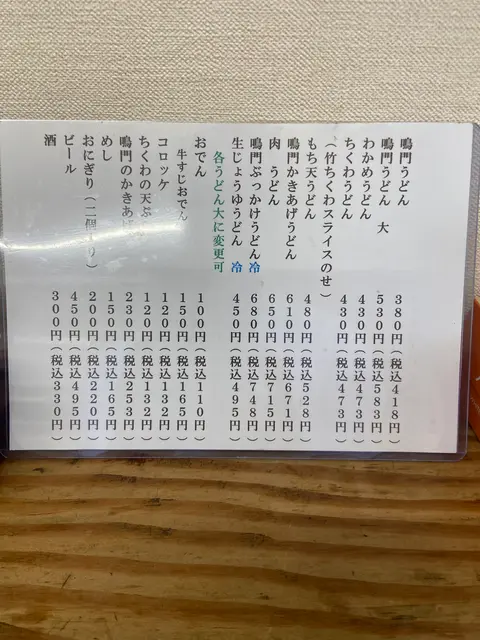 鳴門うどん 380円(税込418円)
鳴門うどん 大 530円(税込583円)
わかめうどん 430円(税込473円)
ちくわうどん 430円(税込473円)
(竹ちくわスライスのせ)
もち天うどん 480円(税込528円)
鳴門かきあげうどん 610円(税込671円)
肉 うどん 650円(税込715円)
鳴門ぶっかけうどん冷 680円(税込748円)
生じょうゆうどん 冷 450円(税込495円)
各うどん大に変更可
おでん 100円(税込110円)
牛すじおでん 150円(税込165円)
コロッケ 120円(税込132円)
ちくわの天ぷ 120円(税込132円)
鳴門のかきあげ 230円(税込253円)
めし 150円(税込165円)
おにぎり(二個入り) 200円(税込220円)
ビール 450円(税込495円)
酒 300円(税込330円)